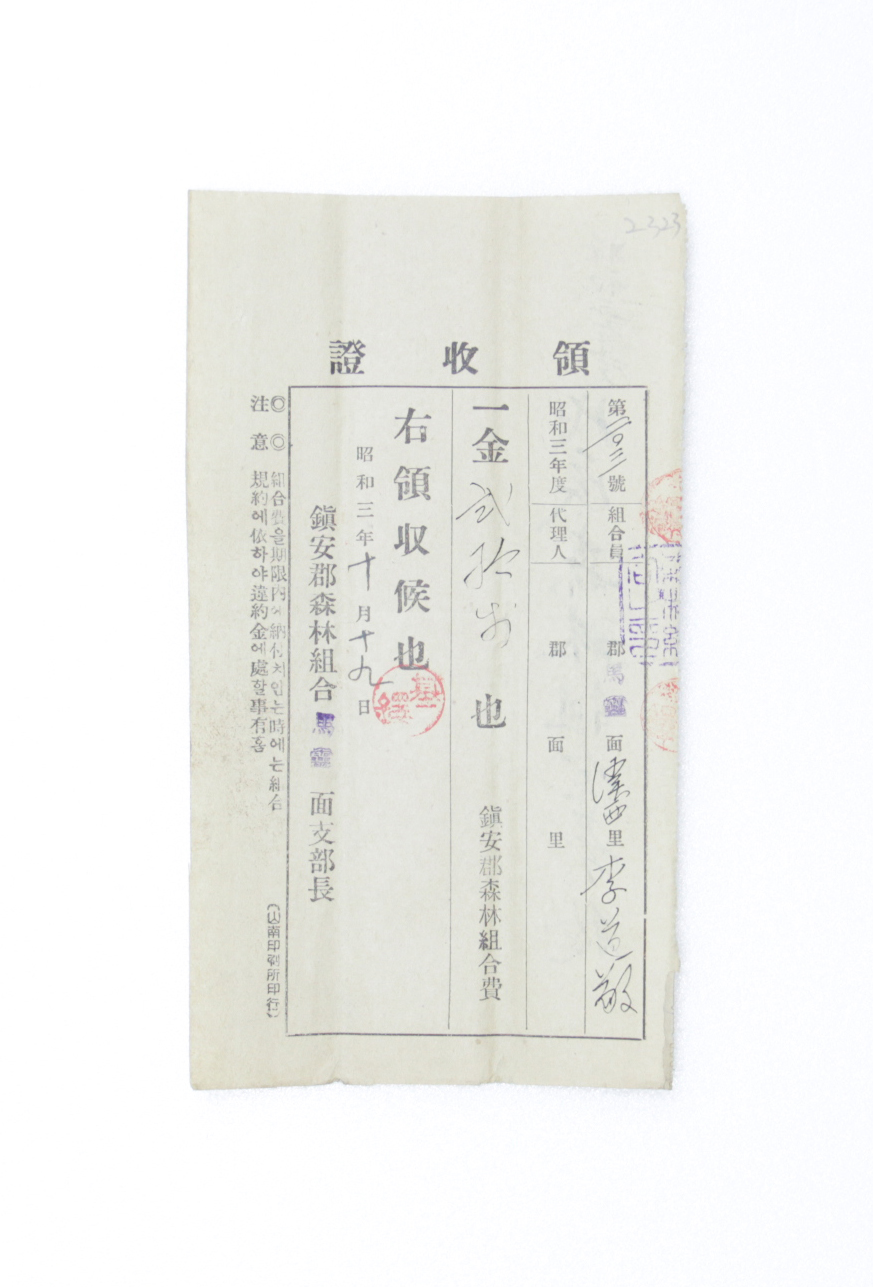 2323
領收證
第 號 組合員 郡 馬靈 面 里 李道敬
昭和三年度 代理人 郡 面 里
一金 弐拾 也 鎭安郡森林組合費
右領収候也
昭和三年十月十九日
鎭安郡森林組合 馬靈 面支部長
注意
◎◎組合費을期限內에納付치안는時에는組合
規約에依하야違約金에處할事有홈
(山南印刷所印行)